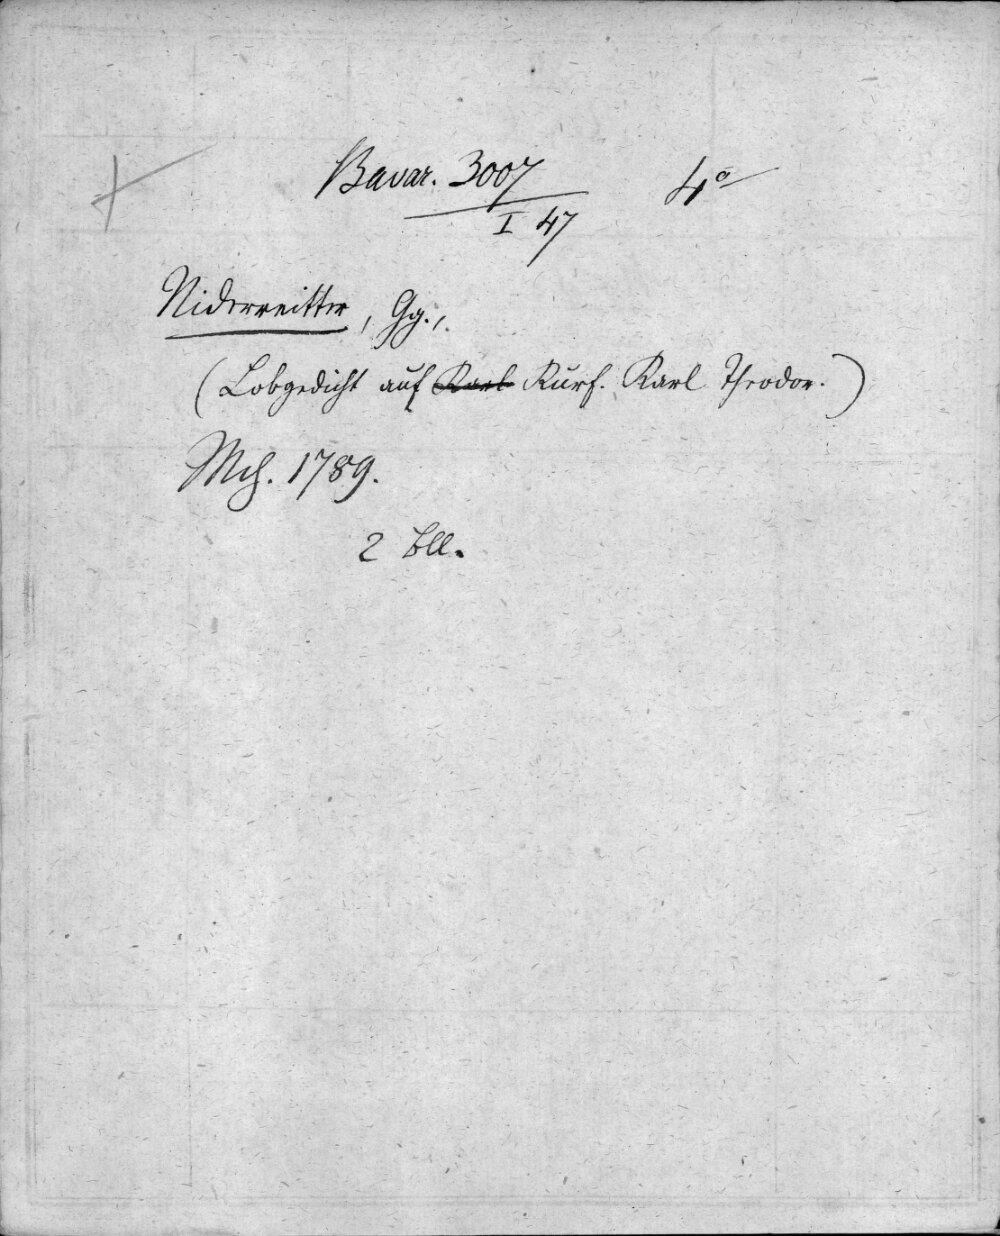 Bavar. 3007 4°
I 47
Niderreitter, Gg.,.
(Lobgedicht auf Karl Kurf. Karl Theodor.)
Mch. 1789.
2 Bll.